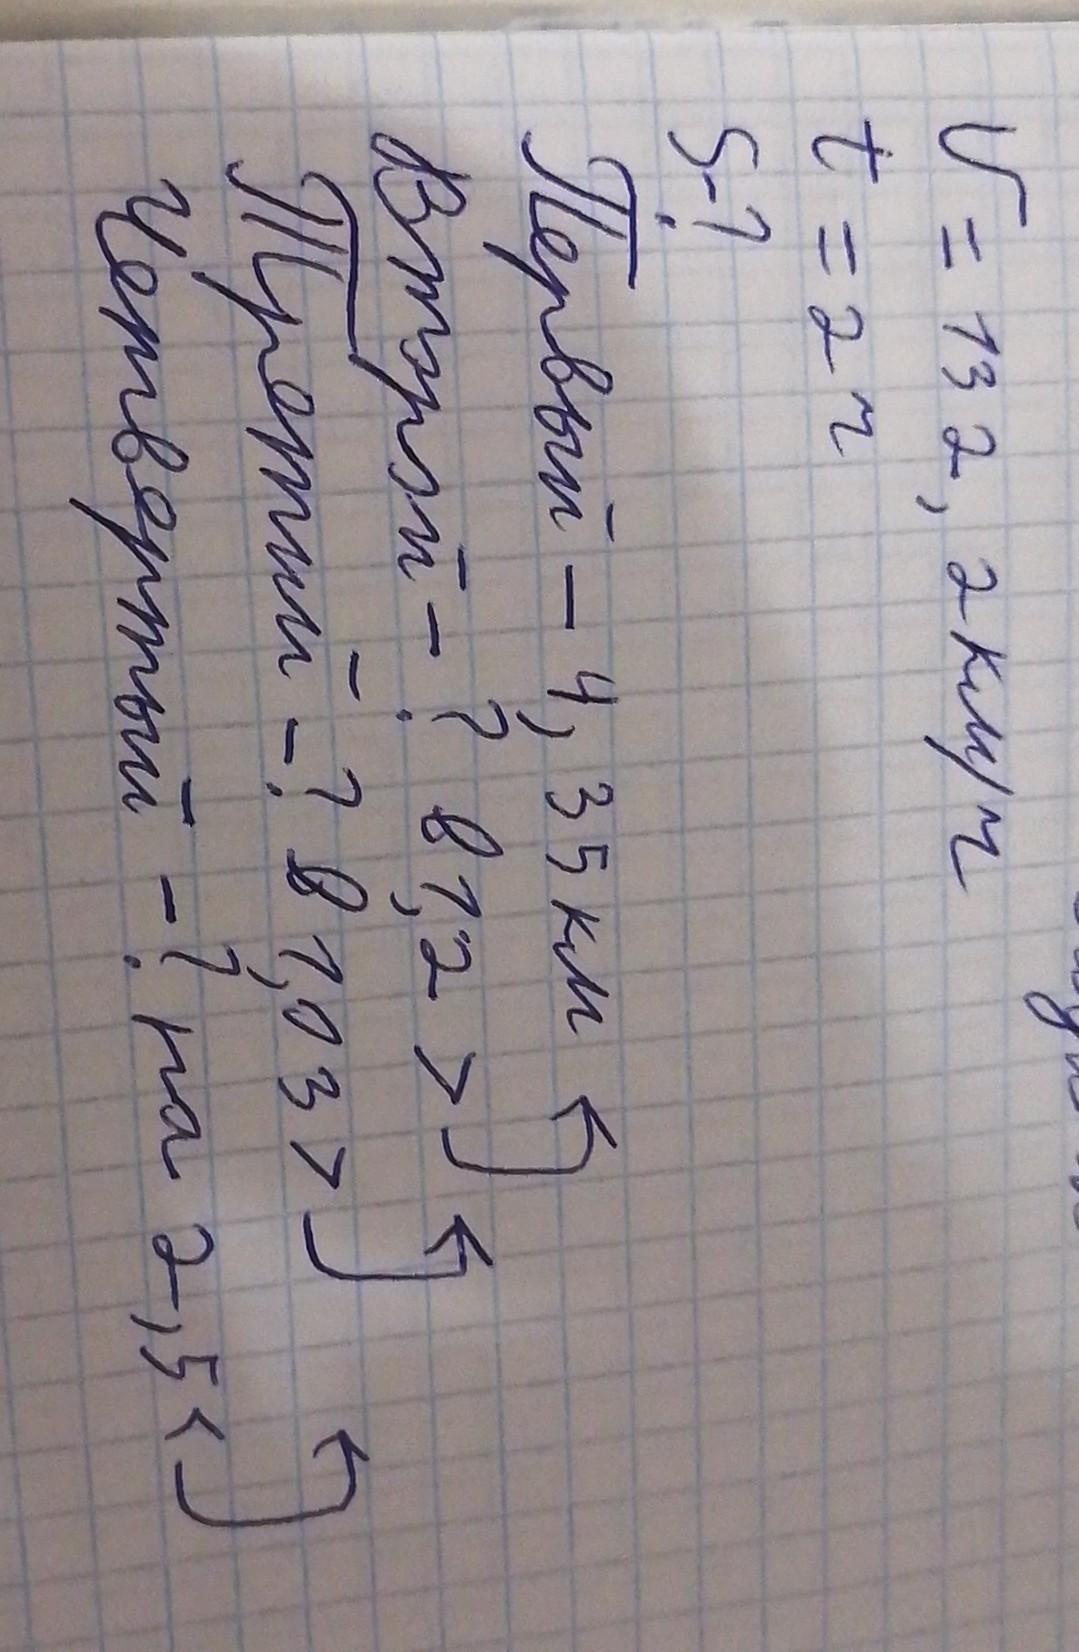 V = 132,2км/ч
t = 2ч
S-?
Первый - 4,35км
Второй - ? в 1,2 >
Третий - ? в 1,03 >
Четвертый - ? на 2,5 <